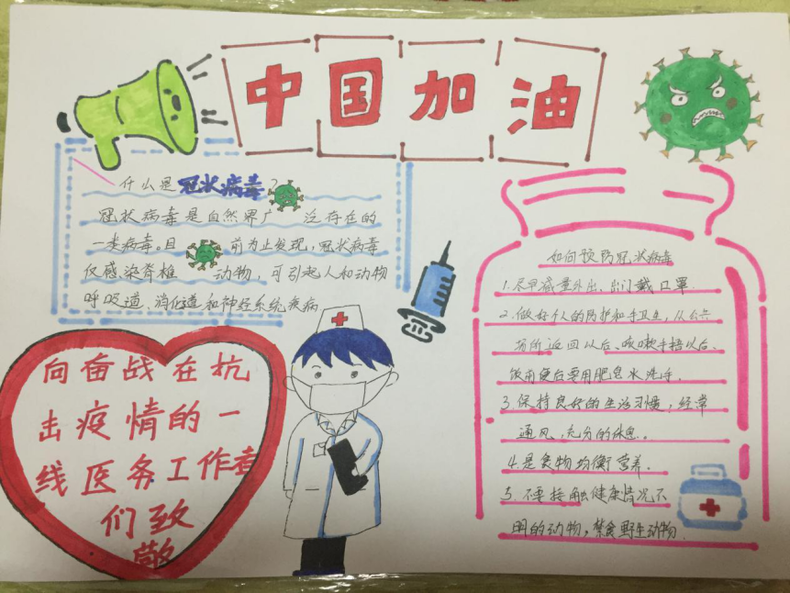 中国加油
什么是冠状病毒?
冠状病毒是自然界广泛存在的
一类病毒。目前为止发现，冠状病毒
仅感染脊椎动物，可引起人和动物
呼吸道、消化道和神经系统疾病
向奋战在抗
击疫情的一
线医务工作者
们致
敬
如何预防冠状病毒
1.尽可减量外出，出门戴口罩
2.做好个人的防护和手卫生，从公共
场所返回以后、咳嗽手捂以后、
饭前便后要用肥皂水洗手。
3.保持良好的生活习惯，经常
通风，充分的休息。
4.是食物均衡营养.
5.不要接触健康情况不
明的动物，禁食野生动物